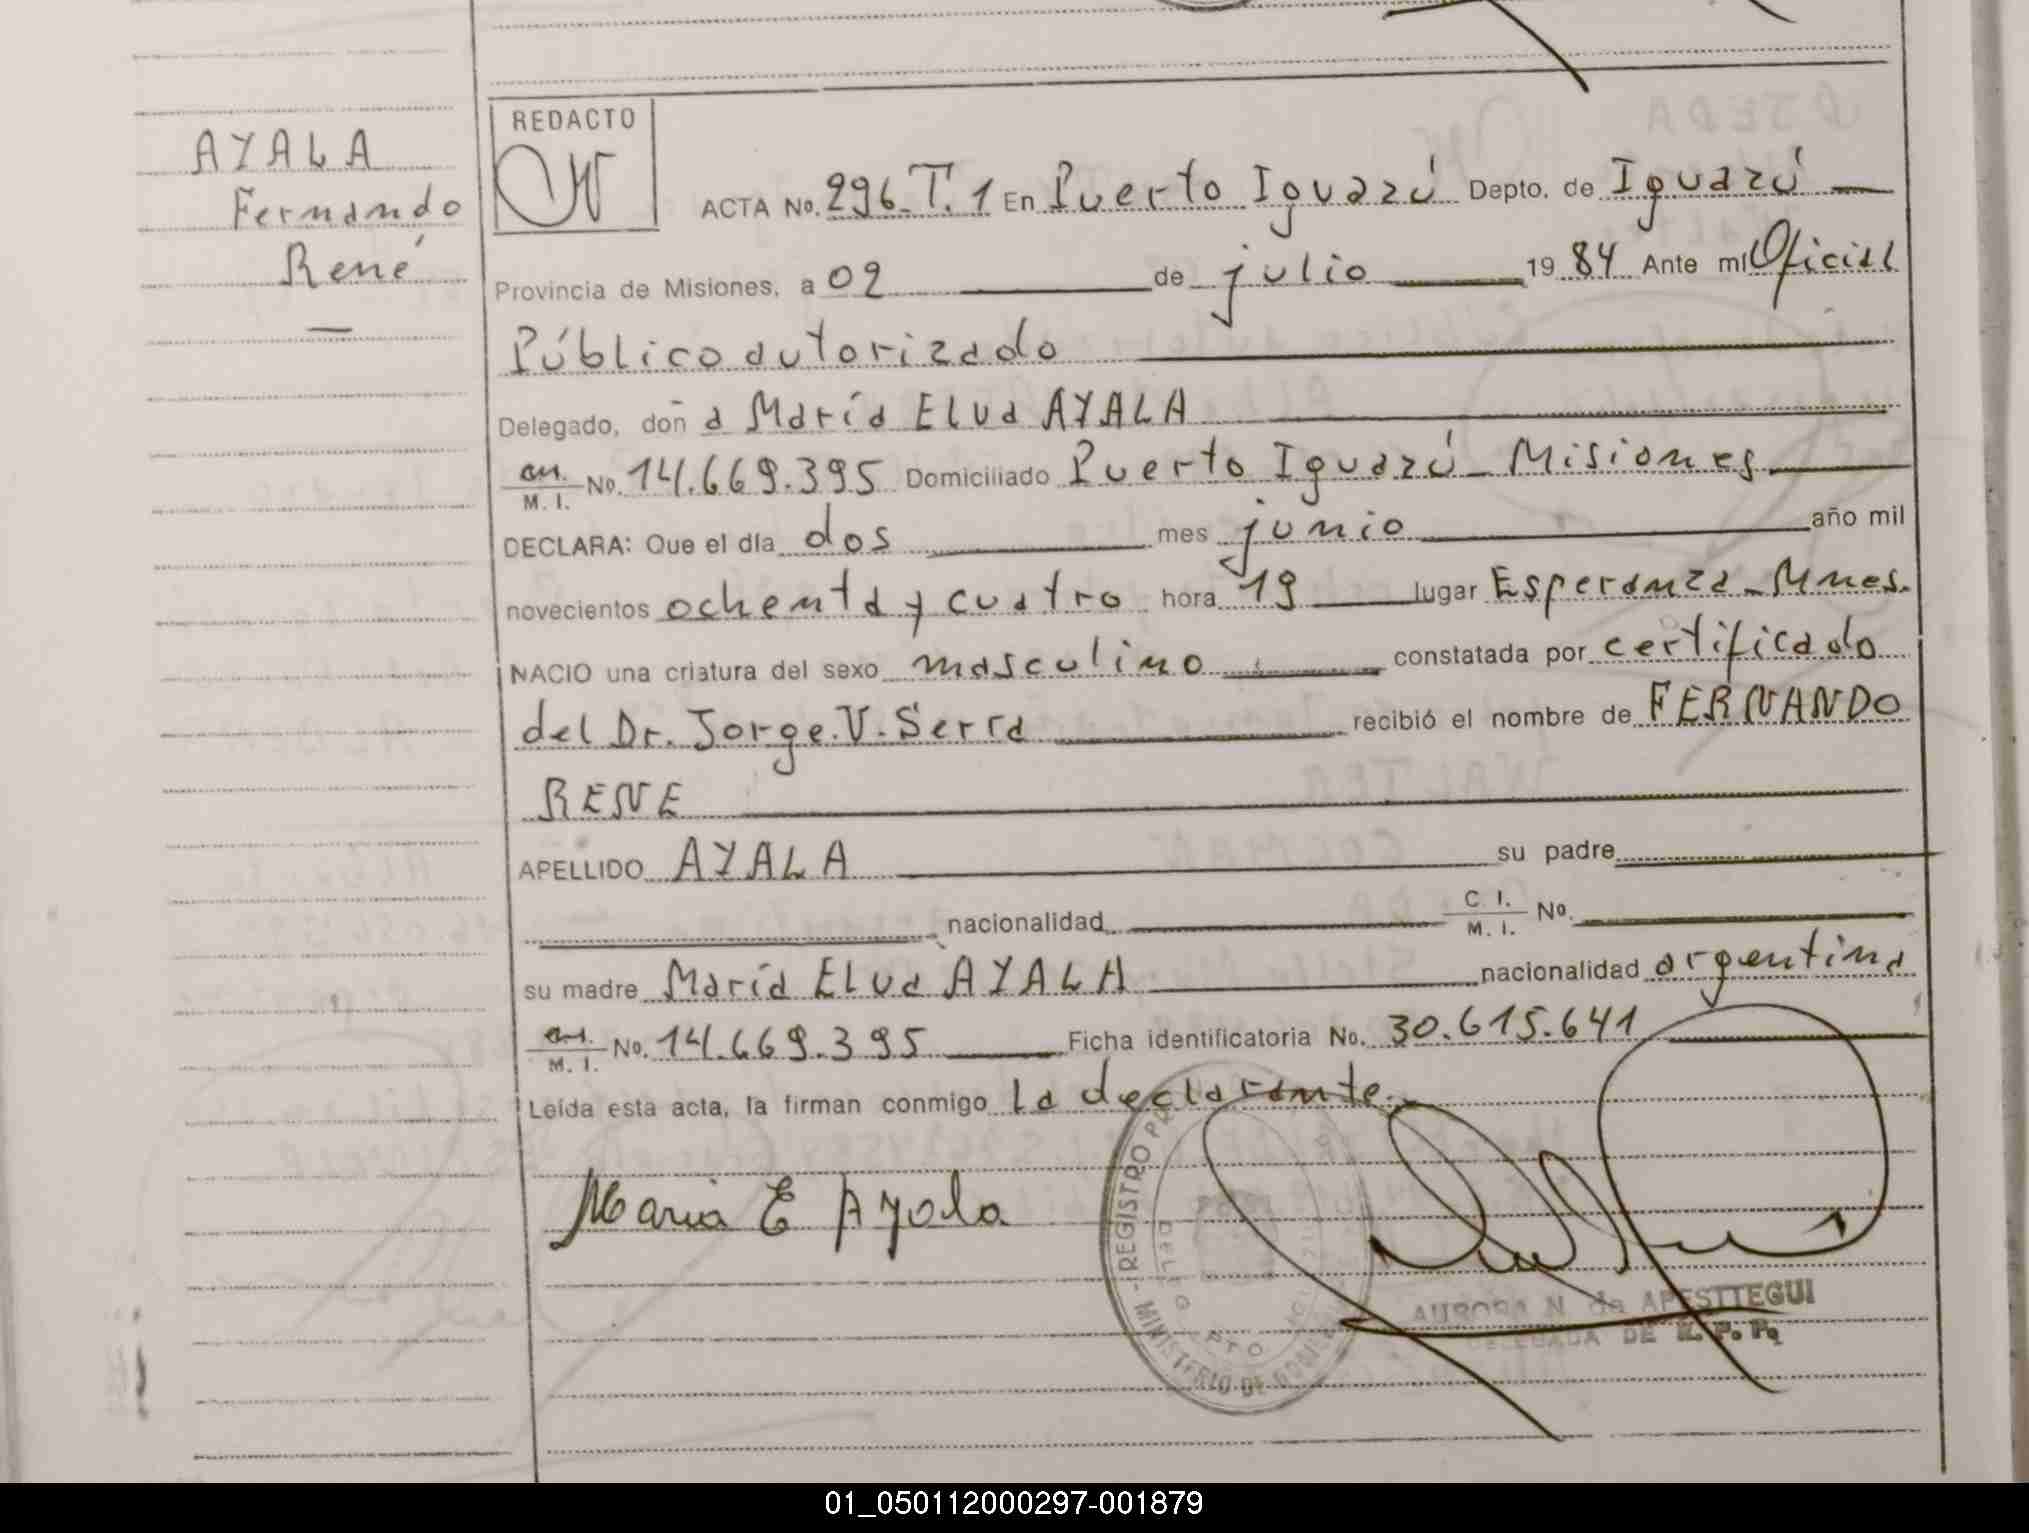 AYALA
Fernando
René
REDACTO
ACTA No. 296. T. 1 En Puerto Iguazú Depto. de Iguazú
Provincia de Misiones, a 02 de julio 19 84 Ante mí Oficial
Público autorizado
Delegado, doña María Elva AYALA
M. I. No. 14.669.395 Domiciliado Puerto Iguazú - Misiones
DECLARA: Que el día dos mes junio año mil
novecientos ochenta y cuatro hora 19 lugar Esperanza - Mnes.
NACIO una criatura del sexo masculino constatada por certificado
del Dr. Jorge. V. Serra recibió el nombre de FERNANDO
RENE
APELLIDO AYALA su padre
nacionalidad C. I. M. I. No.
su madre María Elva AYALA nacionalidad argentina
M. I. No. 14.669.395 Ficha identificatoria No. 30.615.641
Leída esta acta, la firman conmigo la declarante.
Maria E Ayala
REGISTRO
MINISTERIO DE
AURORA N. de APESTTEGUI
DELEGADA DE R. P. P.
01_050112000297-001879